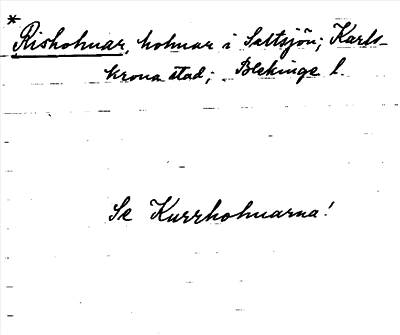 * Risholmar, holmar i Saltsjön; Karls-
krona stad; Blekinge l.
Se Kurrholmarna!